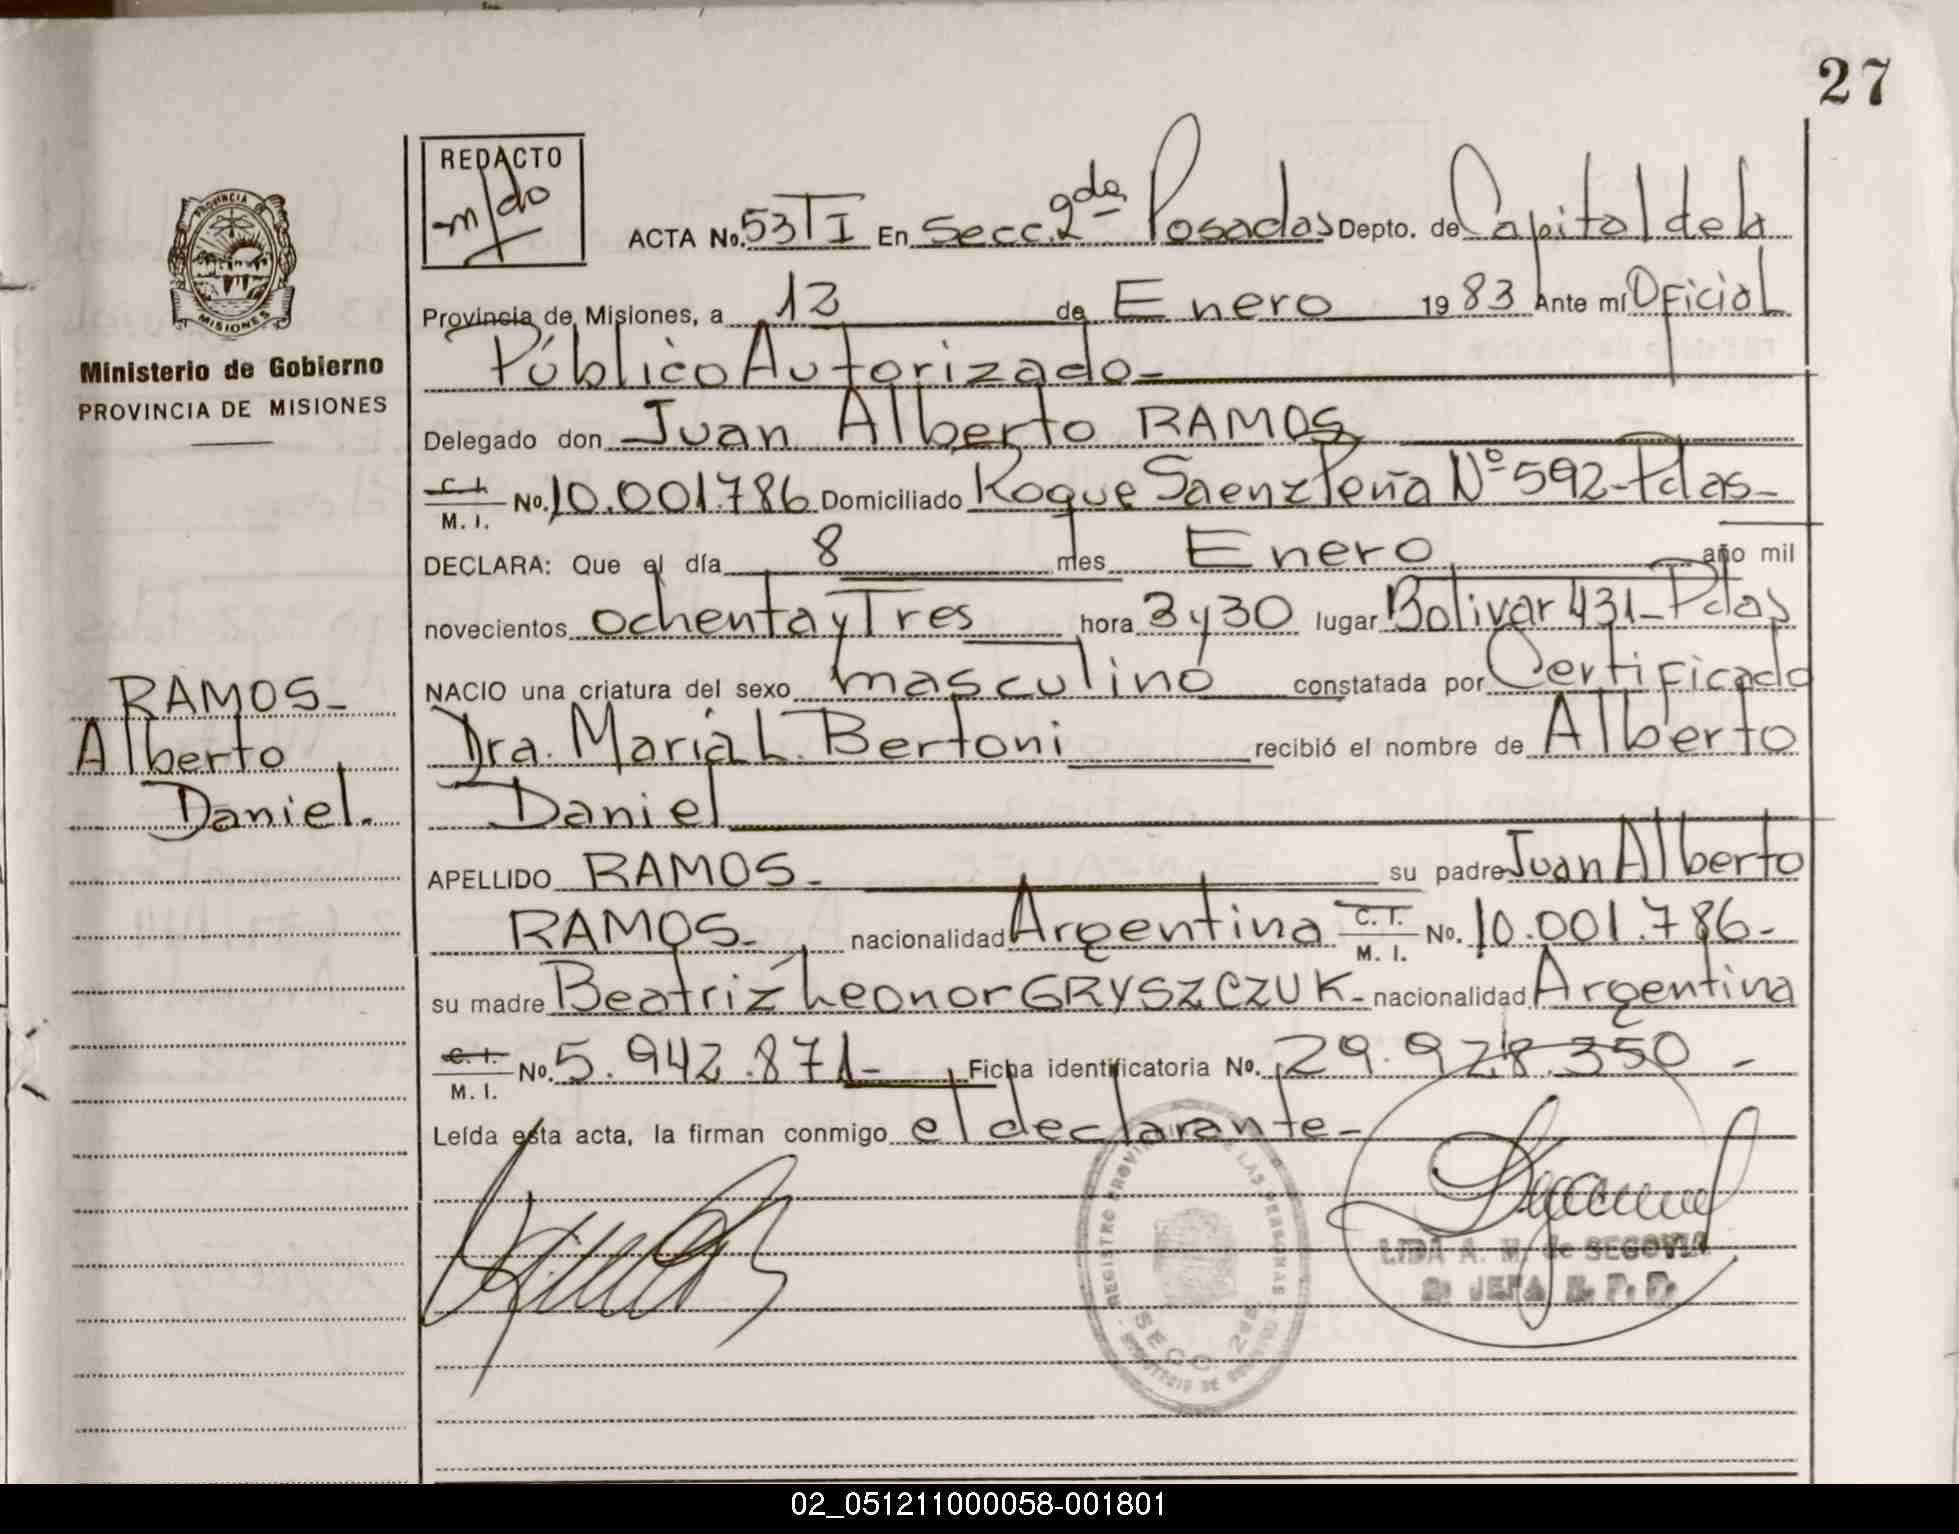 27
REDACTO
m/do
ACTA No. 53 TI En Secc. 2da Posadas Depto. de Capital de la
PROVINCIA DE
MISIONES
Provincia de Misiones, a 12 de Enero 1983 Ante mí Oficial
Ministerio de Gobierno
PROVINCIA DE MISIONES
Público Autorizado-
Delegado don Juan Alberto RAMOS
C. I. M. I. No. 10.001.786 Domiciliado Roque Saenz Peña Nº 592-Pdas-
DECLARA: Que el día 8 mes Enero año mil
novecientos ochenta y Tres hora 3 y 30 lugar Bolivar 431-Pdas
NACIO una criatura del sexo masculino constatada por Certificado
RAMOS-
Alberto
Daniel.
Dra. Maria L. Bertoni recibió el nombre de Alberto
Daniel
APELLIDO RAMOS- su padre Juan Alberto
RAMOS- nacionalidad Argentina C. I. M. I. No. 10.001.786-
su madre Beatriz Leonor GRYSZCZUK- nacionalidad Argentina
C. I. M. I. No. 5.942.871- Ficha identificatoria No. 29.928.350-
Leída esta acta, la firman conmigo el declarante-
REGISTRO PROVINCIAL DE LAS PERSONAS
SECC. 2da
LIDA A. M. de SEGOVIA
2a JEFA R. P. P.
02_051211000058-001801